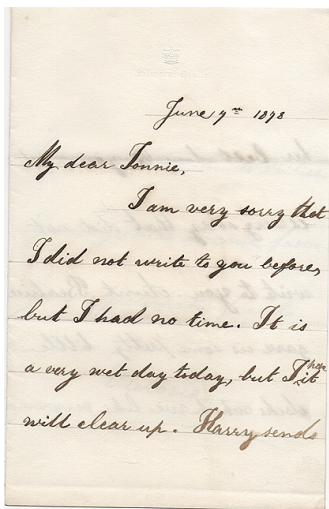 June 7th 1878
My dear Tonnie,
I am very sorry that
I did not write to you before,
but I had no time. It is
a very wet day today, but I hope it
will clear up. Harry sends